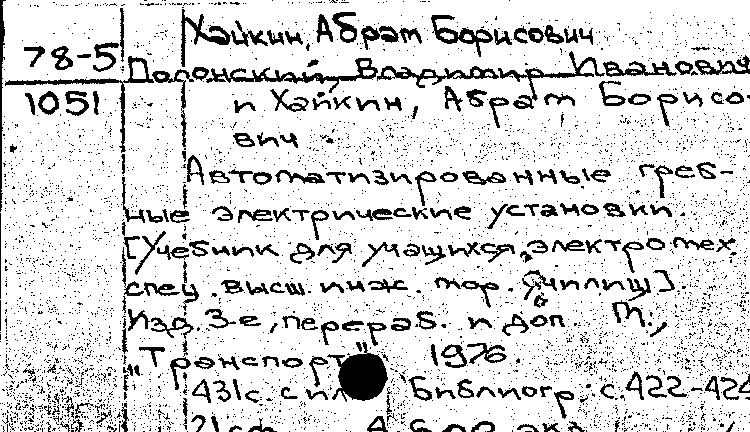 Хайкин, Абрам Борисович
78-5
Полонский, Владимир Иванович
1051
и Хайкин, Абрам Борисо-
вич.
Автоматизированные греб-
ные электрические установки.
[Учебник для учащихся электромех.
спец. высш. инж. мор. училищ].
Изд. 3-е, перераб. и доп. М.,
"Транспорт" 1976.
431с. с ил. Библиогр.: с.422-424
21см.